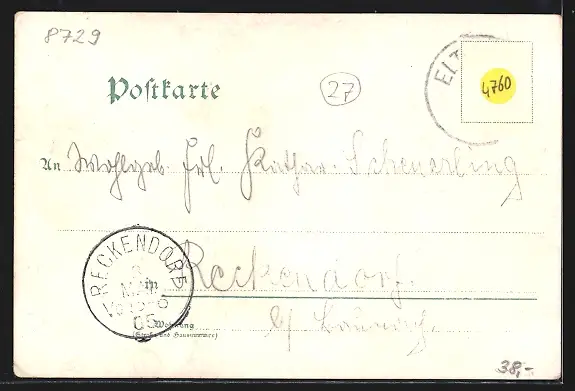 8729
Postkarte
27
4760
An Wohlgeb. Frl. Kathar. Scheuerling
RECKENDORF
MAI
05
in Reckendorf.
b/ Baunach.
Wohnung
(Straße und Hausnummer)
38,-